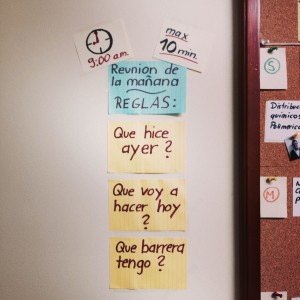 9:00 a.m.
max
10 min.
Reunion de
la mañana
REGLAS:
Que hice
ayer ?
Que voy a
hacer hoy
?
Que barrera
tengo ?
S
Distribu
químicos
Polimeric
M